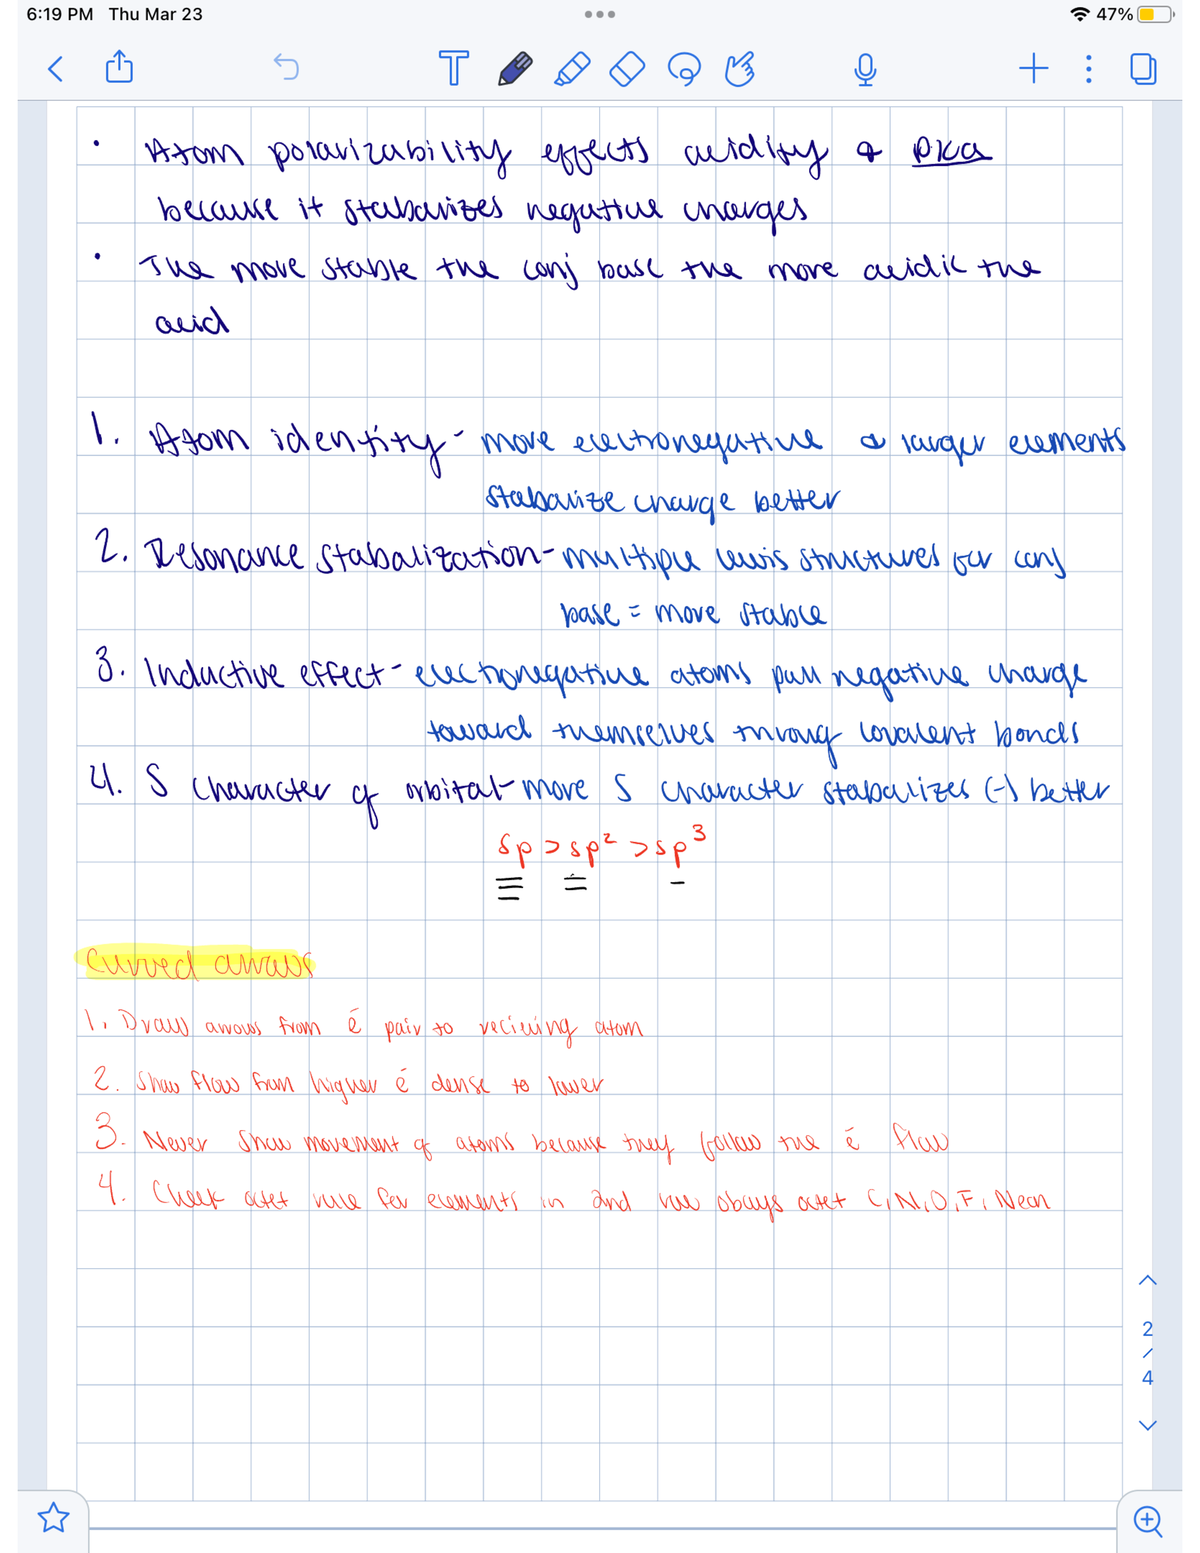 6:19 PM Thu Mar 23
47%
T
• Atom polarizability effects acidity & pka
because it stabarizes negative charges
• The more stable the conj base the more acidic the
acid
1. Atom identity - more electronegative & larger elements
stabarize charge better
2. Resonance stabalization - multiple lewis structures for conj
base = more stable
3. Inductive effect - electronegative atoms pull negative charge
toward themselves throug covalent bonds
4. S character of orbital - more S character stabalizes (-) better
sp > sp² > sp³
Curved arrows
1. Draw arrows from é pair to reciving atom
2. Show flow from higher é dense to lower
3. Never show movement of atoms because they follow the é flow
4. Check octet rule for elements in 2nd row obays octet C, N, O, F, Neon
2
/
4